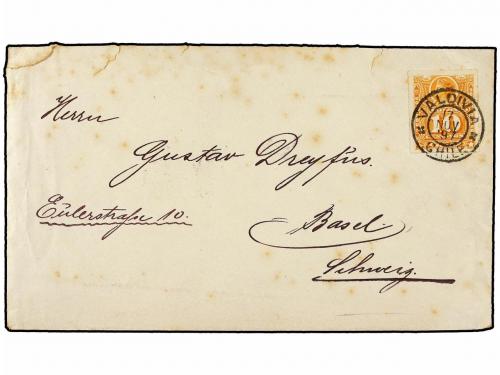 Herrn
Gustav Dreyfus.
Eulerstraße 10.
Basel.
Schweiz.
VALDIVIA
CHILE